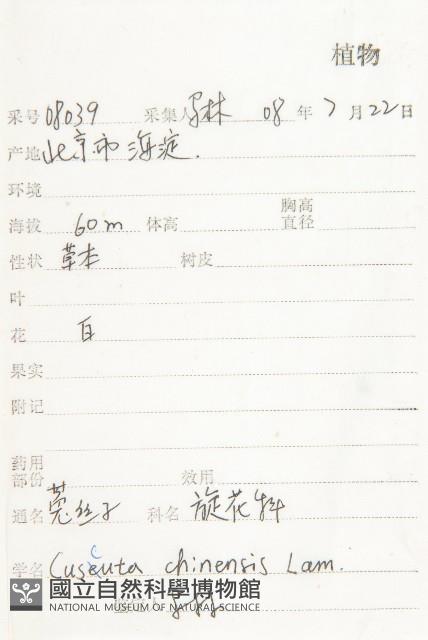 植物
采号 08039 采集人 林 08 年 7 月 22 日
产地 北京市 海淀.
环境
胸高
海拔 60m 体高 直径
性状 草本 树皮
叶
花 白
果实
附记
药用
部份 效用
通名 菟丝子 科名 旋花科
学名 Cuscuta chinensis Lam.
國立自然科學博物館
NATIONAL MUSEUM OF NATURAL SCIENCE